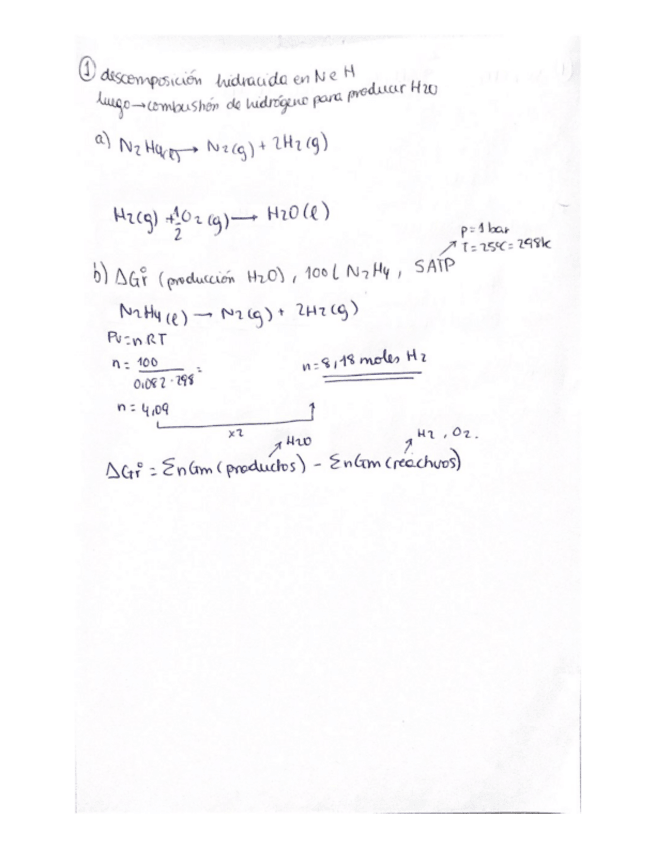 ① descomposición hidracida en N e H
luego → combustión de hidrógeno para producir H2O
a) N2H4(l) → N2(g) + 2H2(g)
H2(g) + 1/2 O2(g) → H2O(l)
p = 1 bar
T = 25ºC = 298K
b) ΔGrº (producción H2O), 100 L N2H4, SATP
N2H4(l) → N2(g) + 2H2(g)
PV = nRT
n = 100 / 0,082 · 298 =
n = 8,18 moles H2
n = 4,09
x2
H2O
H2, O2.
ΔGrº = ΣnGm (productos) - ΣnGm (reactivos)